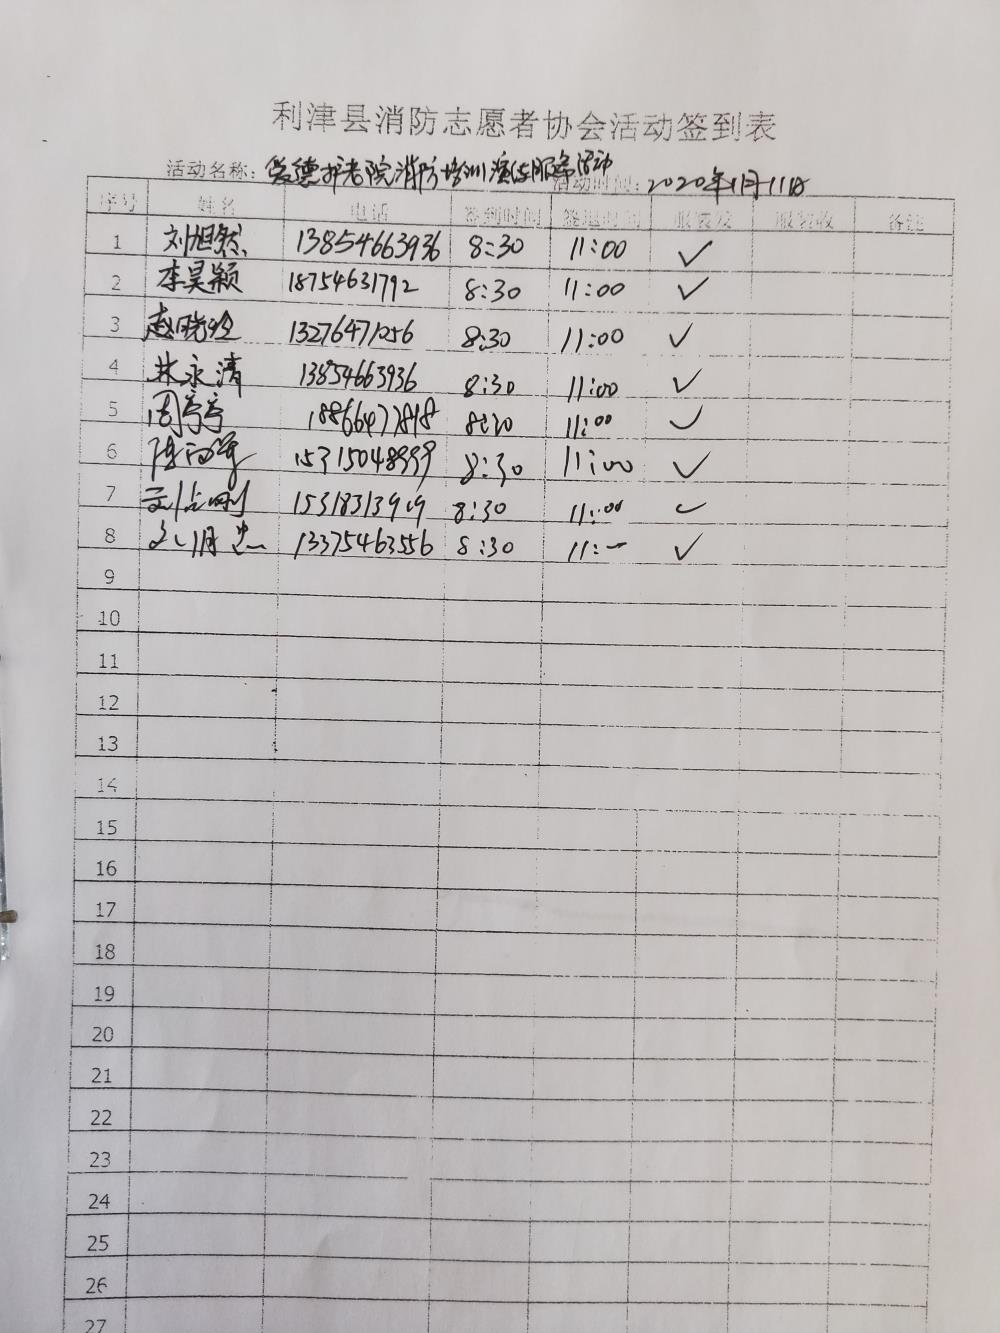 利津县消防志愿者协会活动签到表
活动名称：爱德护老院消防培训演练服务活动 活动时间：2020年11月11日
序号 姓名 电话 签到时间 签退时间 服装发 服装收 备注
1 刘旭然 13854663936 8:30 11:00 ✓
2 李昊颖 18754631792 8:30 11:00 ✓
3 赵晓玲 13276471256 8:30 11:00 ✓
4 林永清 13854663936 8:30 11:00 ✓
5 周亭亭 18866477818 8:30 11:00 ✓
6 陈 15315048999 8:30 11:00 ✓
7 15318313919 8:30 11:00 ✓
8 13375463556 8:30 11:— ✓
9
10
11
12
13
14
15
16
17
18
19
20
21
22
23
24
25
26
27